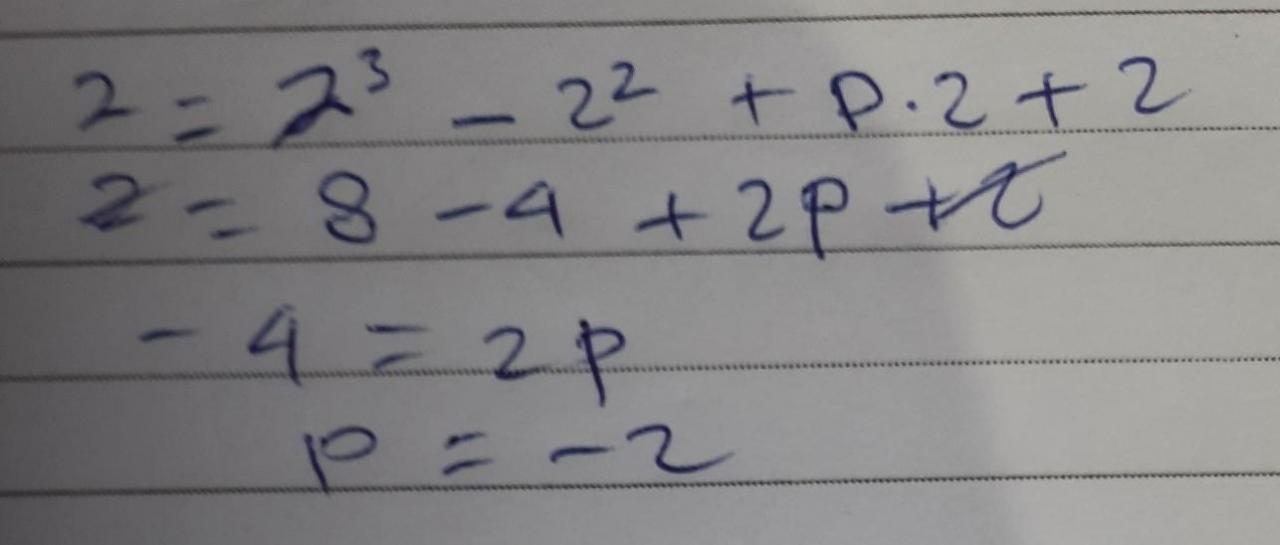 2 = 2³ - 2² + p·2 + 2
2 = 8 - 4 + 2p + 2
- 4 = 2p
p = -2